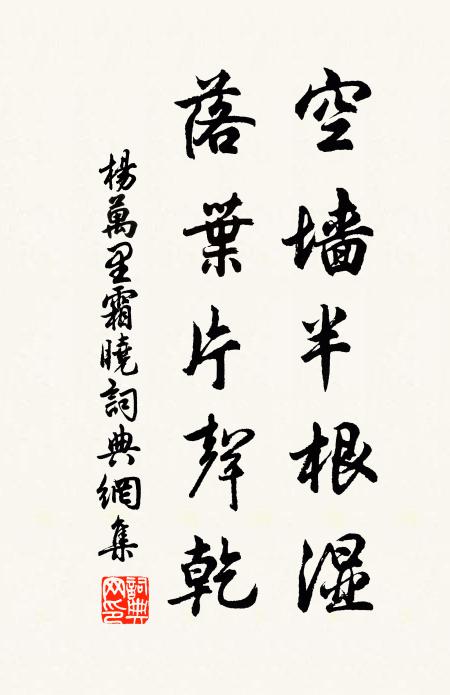 空墙半根濕
落葉片聲乾
楊萬里霜曉詞典網集
詞典網印